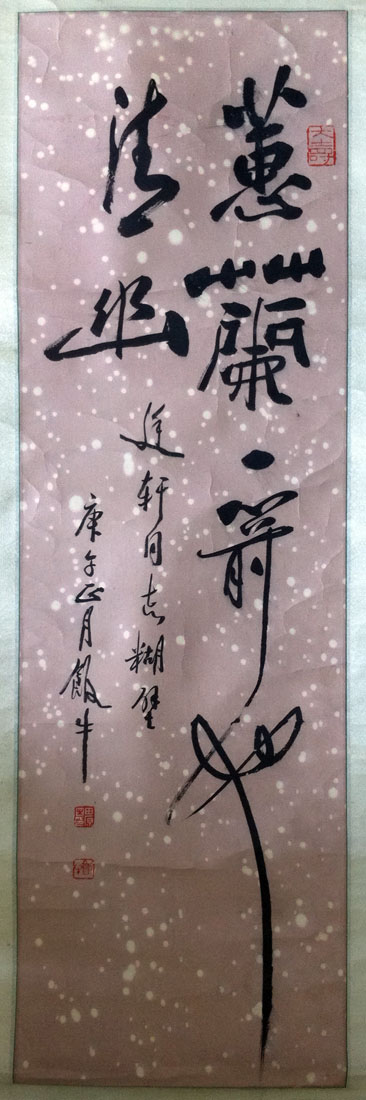 蕙蘭一箭也
清幽
轩同志糊壁
庚午正月飯牛